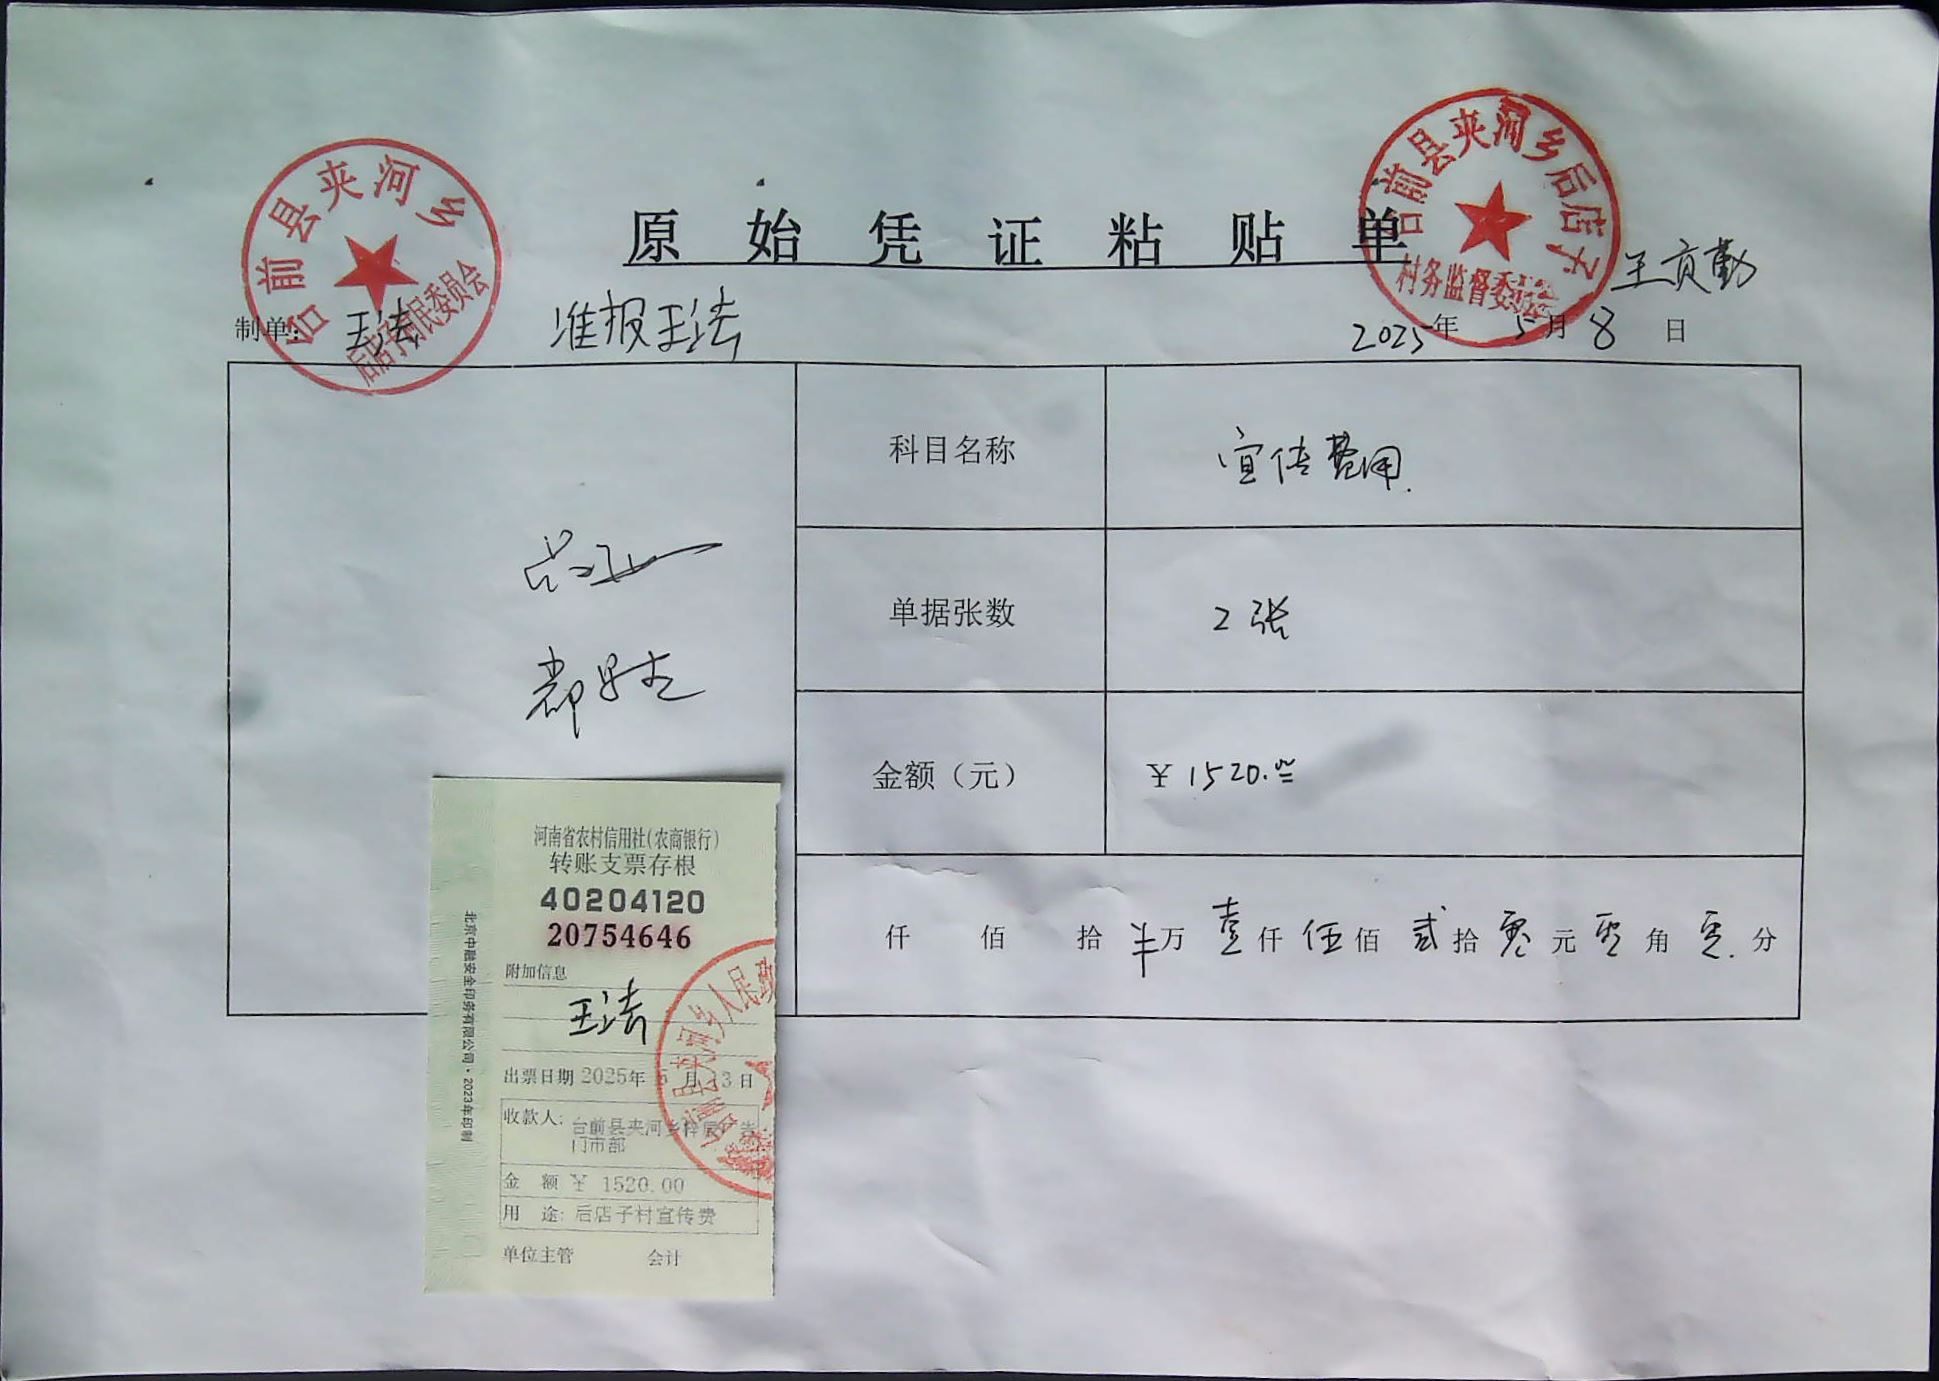 台前县夹河乡
后店子村民委员会
台前县夹河乡后店子
村务监督委员会
原始凭证粘贴单
制单: 王法
准报王法
王贡勤
2025年 5月8日
科目名称 宣传费用.
单据张数 2张
金额（元） ¥1520.00
仟 佰 拾 半万 壹仟 伍佰 贰拾 零元 零角 零分
河南省农村信用社(农商银行)
转账支票存根
40204120
20754646
附加信息
王法
出票日期 2025年 5月13日
收款人: 台前县夹河乡 广告
门市部
金 额 ¥ 1520.00
用 途: 后店子村宣传费
单位主管 会计
北京中融安全印务有限公司·2023年印制
台前县夹河乡人民政